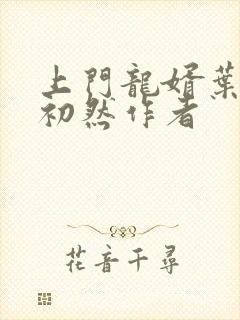 上門龍婿葉
初然作者
花音千尋